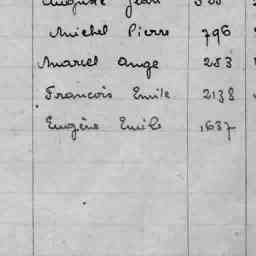 Auguste Jean
Michel Pierre 796
Marcel Ange 253
François Emile 2138
Eugène Emile 1637